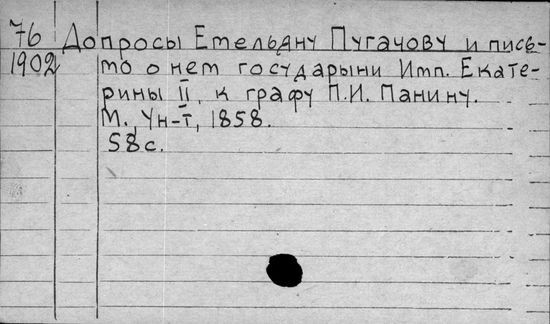 76 Допросы Емельяну Пугачову и пись-
1902 мо о нем государыни Имп. Екате-
рины II, к графу П.И. Панину.
М., Ун-т, 1858.
58 с.